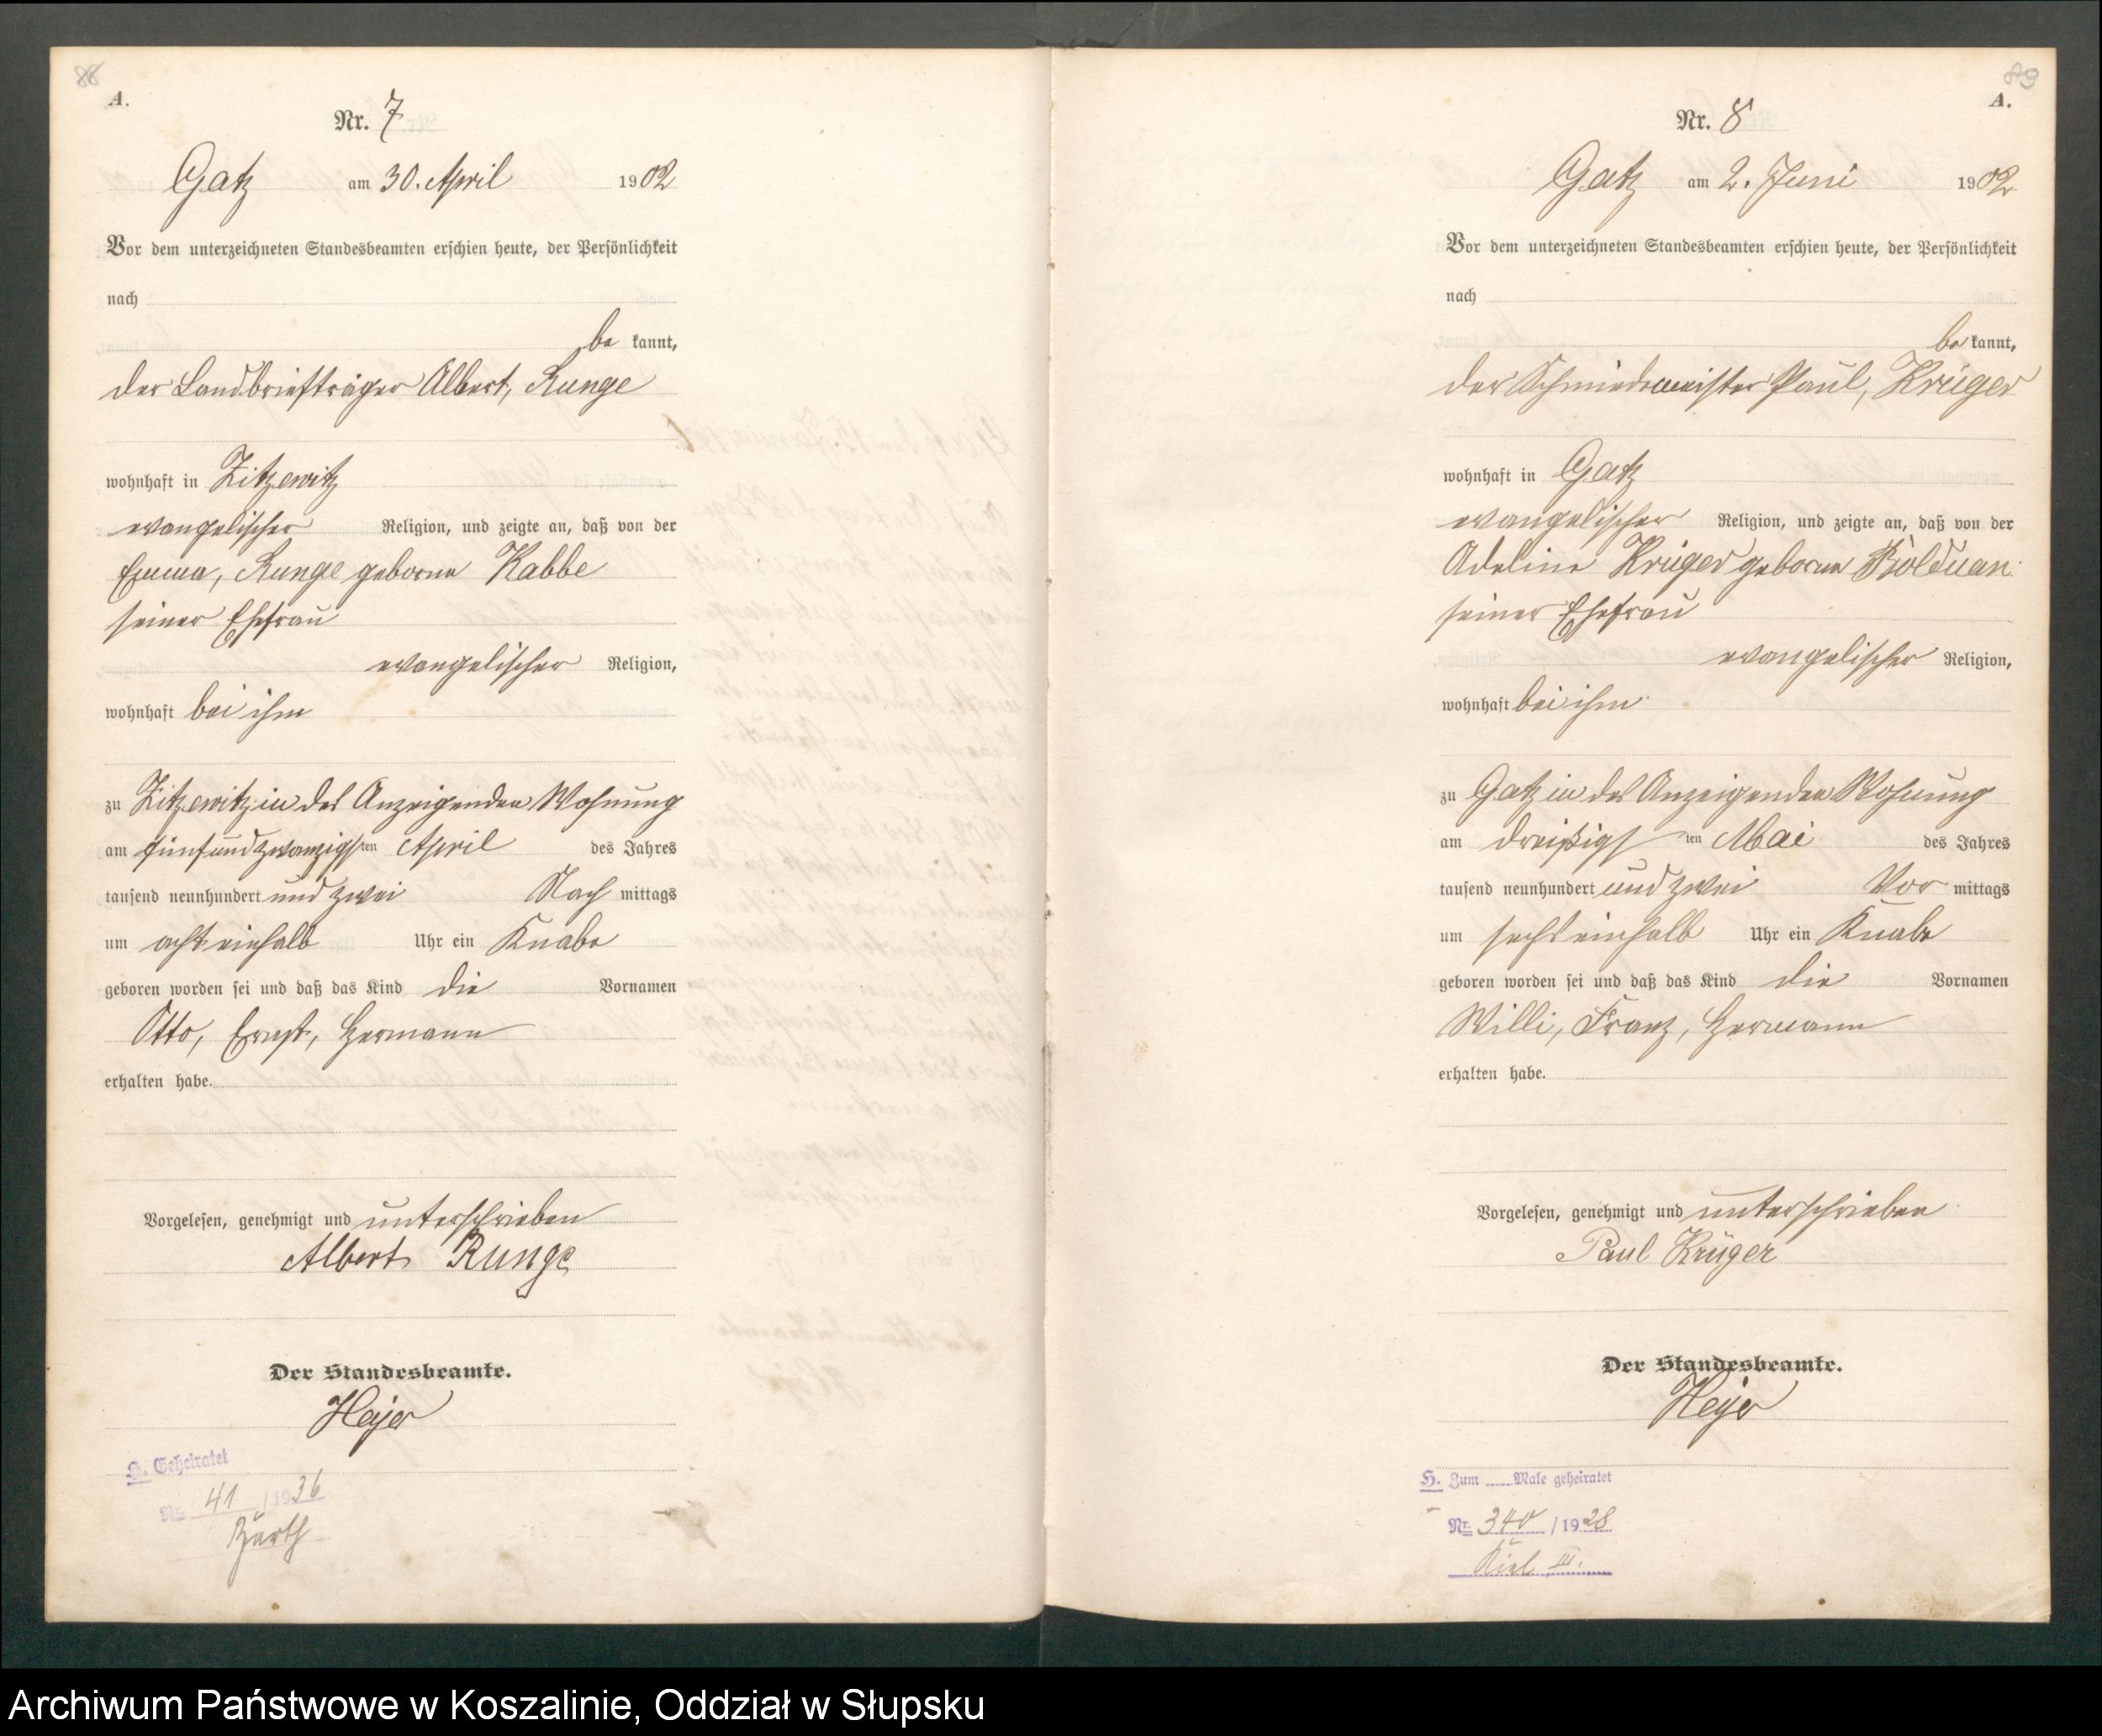 88
A.
Nr. 7
Gatz am 30. April 1902
Vor dem unterzeichneten Standesbeamten erschien heute, der Persönlichkeit
nach
be kannt,
der Landbriefträger Albert, Runge
wohnhaft in Zitzewitz
evangelischer Religion, und zeigte an, daß von der
Emma, Runge geborne Kabbe
seiner Ehefrau
evangelischer Religion,
wohnhaft bei ihm
zu Zitzewitz in des Anzeigenden Wohnung
am fünfundzwanzigsten April des Jahres
tausend neunhundert und zwei Nach mittags
um acht einhalb Uhr ein Knabe
geboren worden sei und daß das Kind die Vornamen
Otto, Ernst, Hermann
erhalten habe.
Vorgelesen, genehmigt und unterschrieben
Albert Runge
Der Standesbeamte.
Heyer
H. Geheiratet
Nr. 41 / 1926
89
A.
Nr. 8
Gatz am 2. Juni 1902
Vor dem unterzeichneten Standesbeamten erschien heute, der Persönlichkeit
nach
be kannt,
der Schmiedemeister Paul, Krüger
wohnhaft in Gatz
evangelischer Religion, und zeigte an, daß von der
Adeline Krüger geborne Bolduan
seiner Ehefrau
evangelischer Religion,
wohnhaft bei ihm
zu Gatz in des Anzeigenden Wohnung
am dreißigsten Mai des Jahres
tausend neunhundert und zwei Vor mittags
um sechs einhalb Uhr ein Knabe
geboren worden sei und daß das Kind die Vornamen
Willi, Franz, Hermann
erhalten habe.
Vorgelesen, genehmigt und unterschrieben
Paul Krüger
Der Standesbeamte.
Heyer
H. Zum ..... Male geheiratet
Nr. 340 / 1928
Kiel III.
Archiwum Państwowe w Koszalinie, Oddział w Słupsku